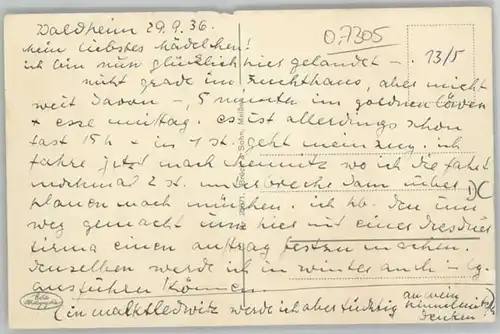 Waldheim 29.9.36.
mein liebstes Mädelchen!
ich bin nun glücklich hier gelandet –.
nicht grade im Zuchthaus, aber nicht
weit davon –, 5 minuten im goldnen Löwen
+ esse mittag. es ist allerdings schon
fast 15 h + in 1 st. geht mein zug. ich
fahre jetzt nach chemnitz wo ich die fahrt
nochmal 2 st. unterbreche dann über
planen nach münchen. ich hb. den um
weg gemacht um hier mit einer dresdner
firma einen auftrag festzumachen.
denselben werde ich im winter auch
ausführen können
(in marktredwitz werde ich aber tüchtig an mein
denken)
07305
13/5
DC